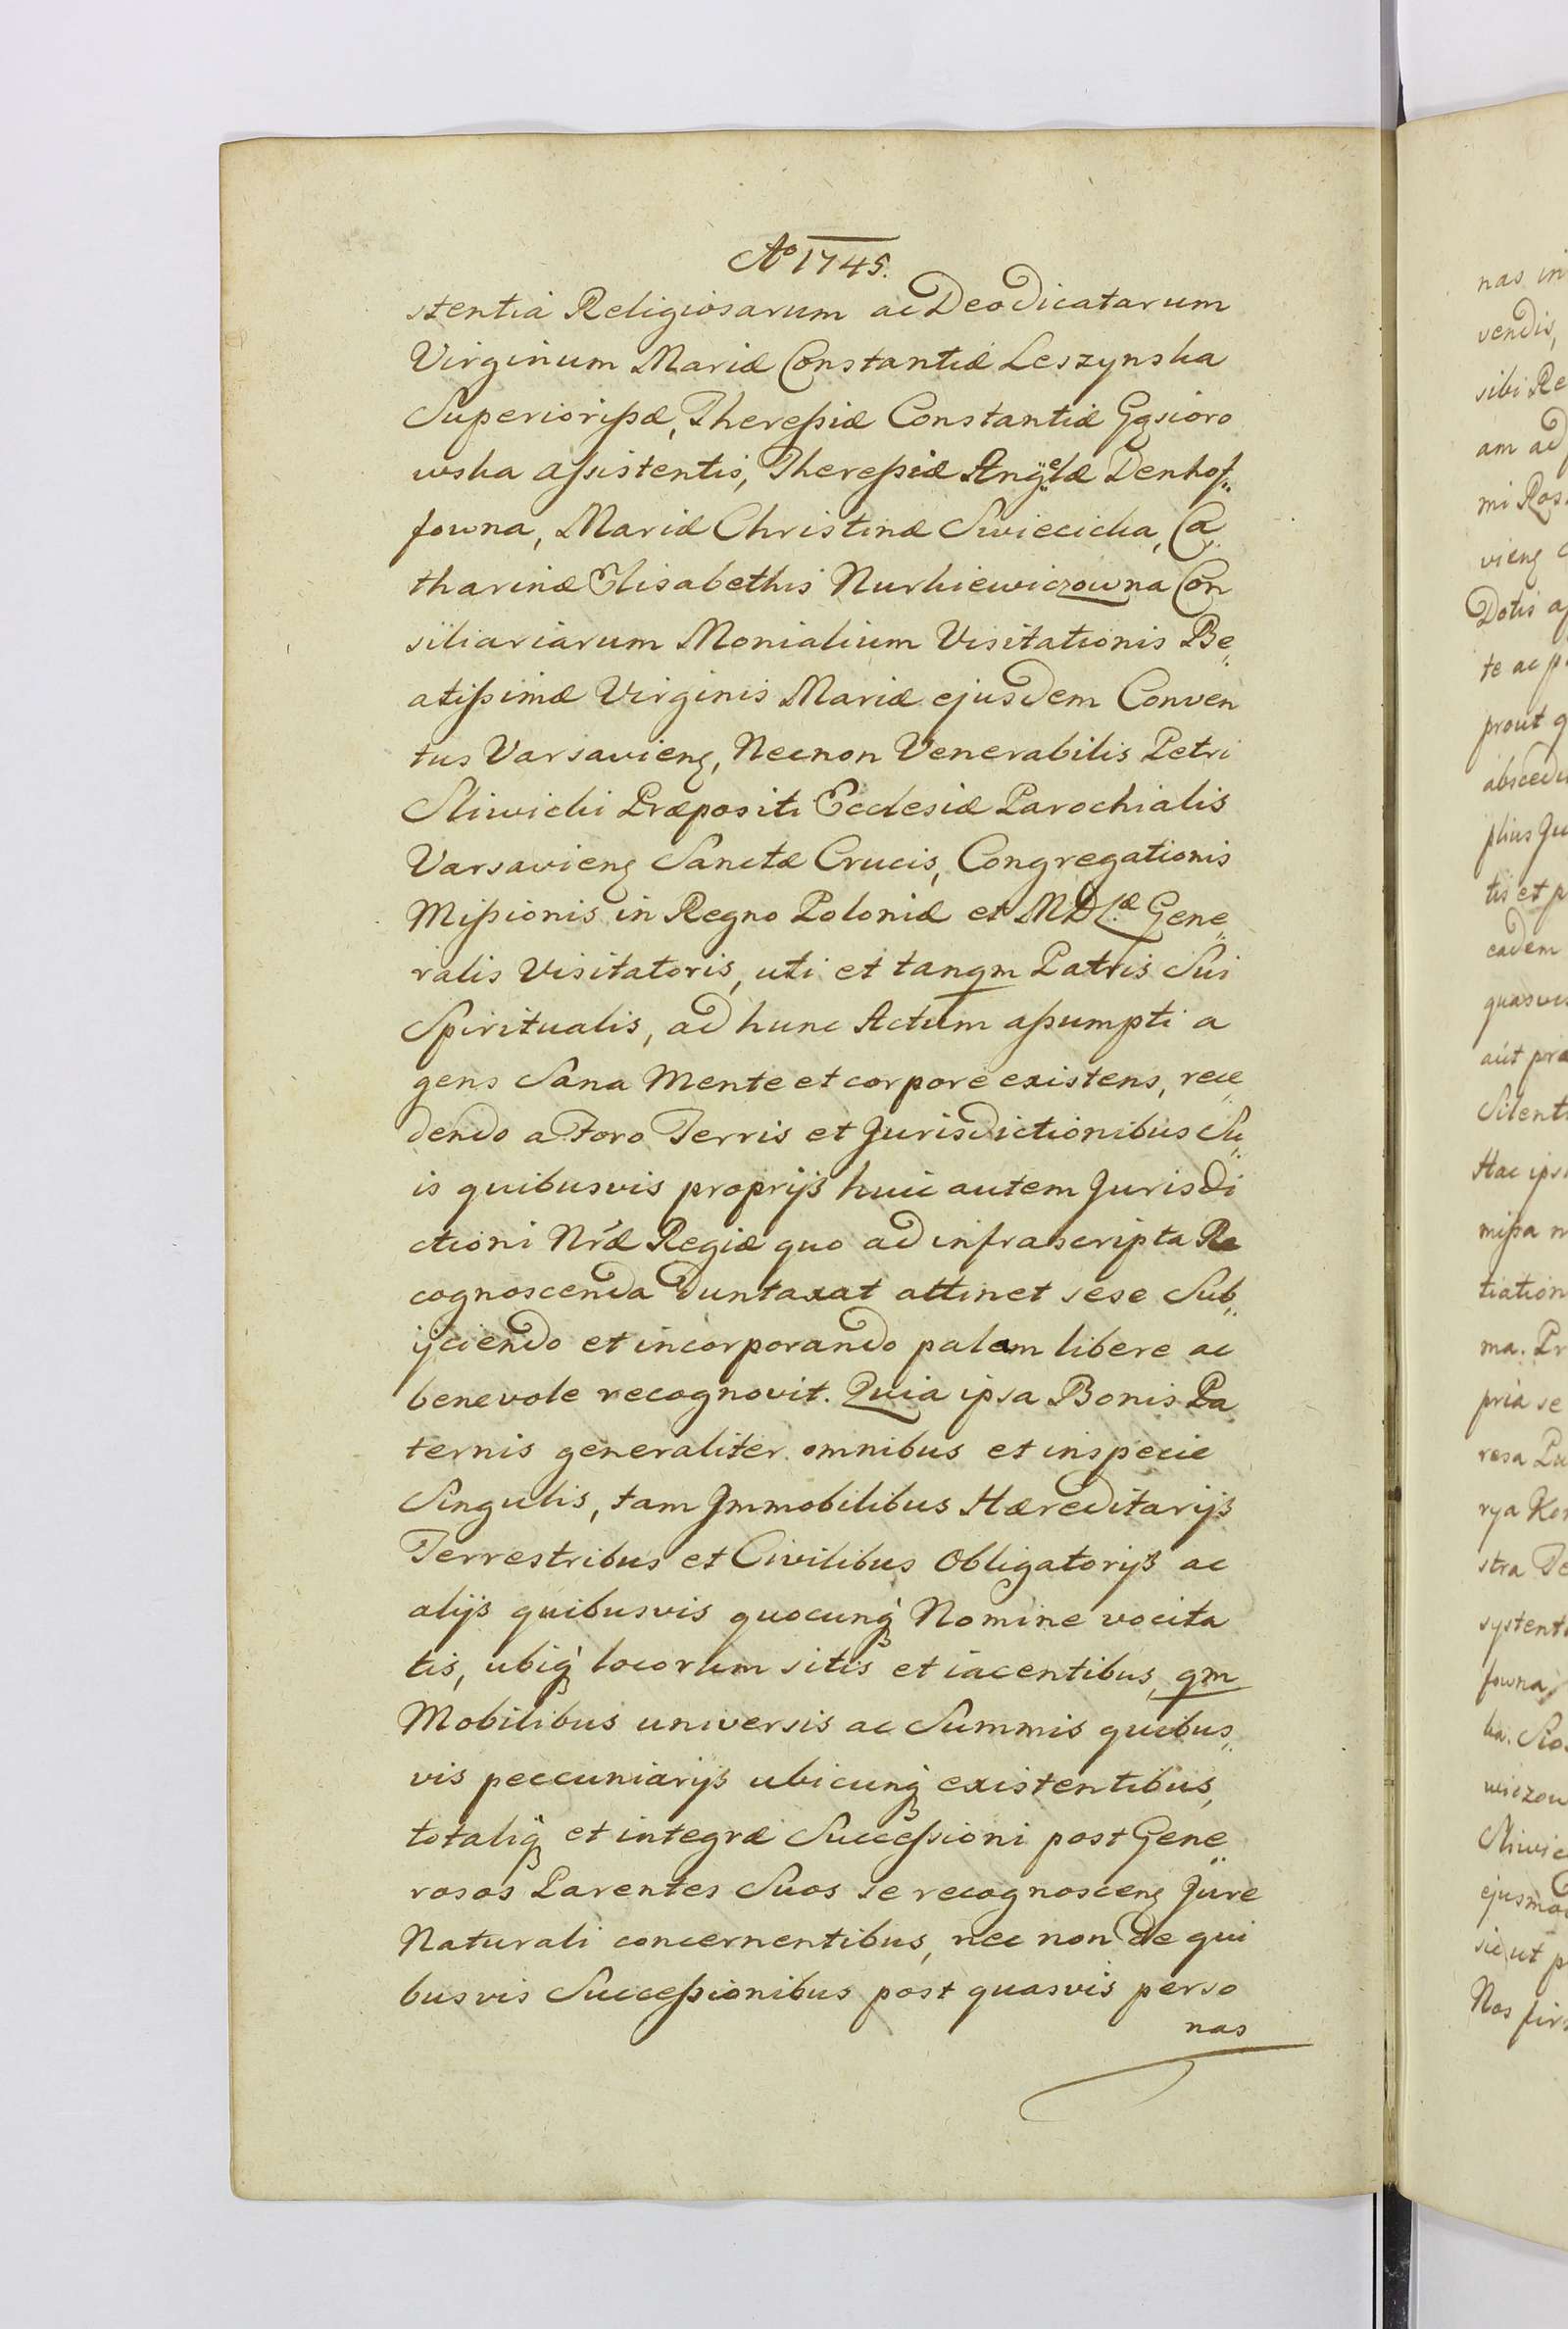 Aº 1745.
stentiâ Religiosarum ac Deo Dicatarum
Virginum Mariæ Constantiæ Leszynska
Superiorißæ, Thereßiæ Constantiæ Gąsioro
wska aßistentis, Thereßiæ Angelæ Denhof„
fowna, Mariæ Christinæ Swiecicka, Ca„
tharinæ Elisabethis Nurkiewiczowna Con
siliariarum Monialium Visitationis Be„
atißimæ Virginis Mariæ ejusdem Conven
tus Varsavieng, Necnon Venerabilis Petri
Sliwicki Præpositi Ecclesiæ Parochialis
Varsavieng Sanctæ Crucis, Congregationis
Mißionis in Regno Poloniæ et M.D.L.æ Gene„
ralis Visitatoris, uti et tanqm Patris Sui
Spiritualis, ad hunc Actum aßumpti a
gens Sana Mente et corpore existens, rece„
dendo a Foro Terris et Jurisdictionibus Su„
is quibusvis proprijs huic autem Jurisdi
ctioni Nrǽ Regiæ quo ad infrascripta Re
cognoscenda duntaxat attinet sese Sub„
ijciendo et incorporando palam libere ac
benevole recognovit. Quia ipsa Bonis Pa
ternis generaliter omnibus et inspecie
Singulis, tam Jmmobilibus Hæreditarijs
Terrestribus et Civilibus Obligatorijs ac
alijs quibusvis quocunq Nomine vocita
tis, ubiq locorum sitis et iacentibus, qm
Mobilibus universis ac Summis quibus„
vis peccuniarijs ubicunq existentibus,
totaliq et integræ Succeßioni post Gene„
rosos Parentes Suos se recognosceng Jure
Naturali concernentibus, nec non de qui
busvis Succeßionibus post quasvis perso
nas
nas in
vendis,
sibi Re
am ad
mi Ros
vieng
Dotis
te ac
prout
absced
plius Ju
tis et p
eadem
quasvis
aut præ
Silent
Hac ips
mißa n
tiation
ma. Pr
pria se
resa Pu
rya Kon
stra Te
systent
fowna
ka. Sios
wiczow
Sliwic
ejusmo
sic ut p
Nos fir